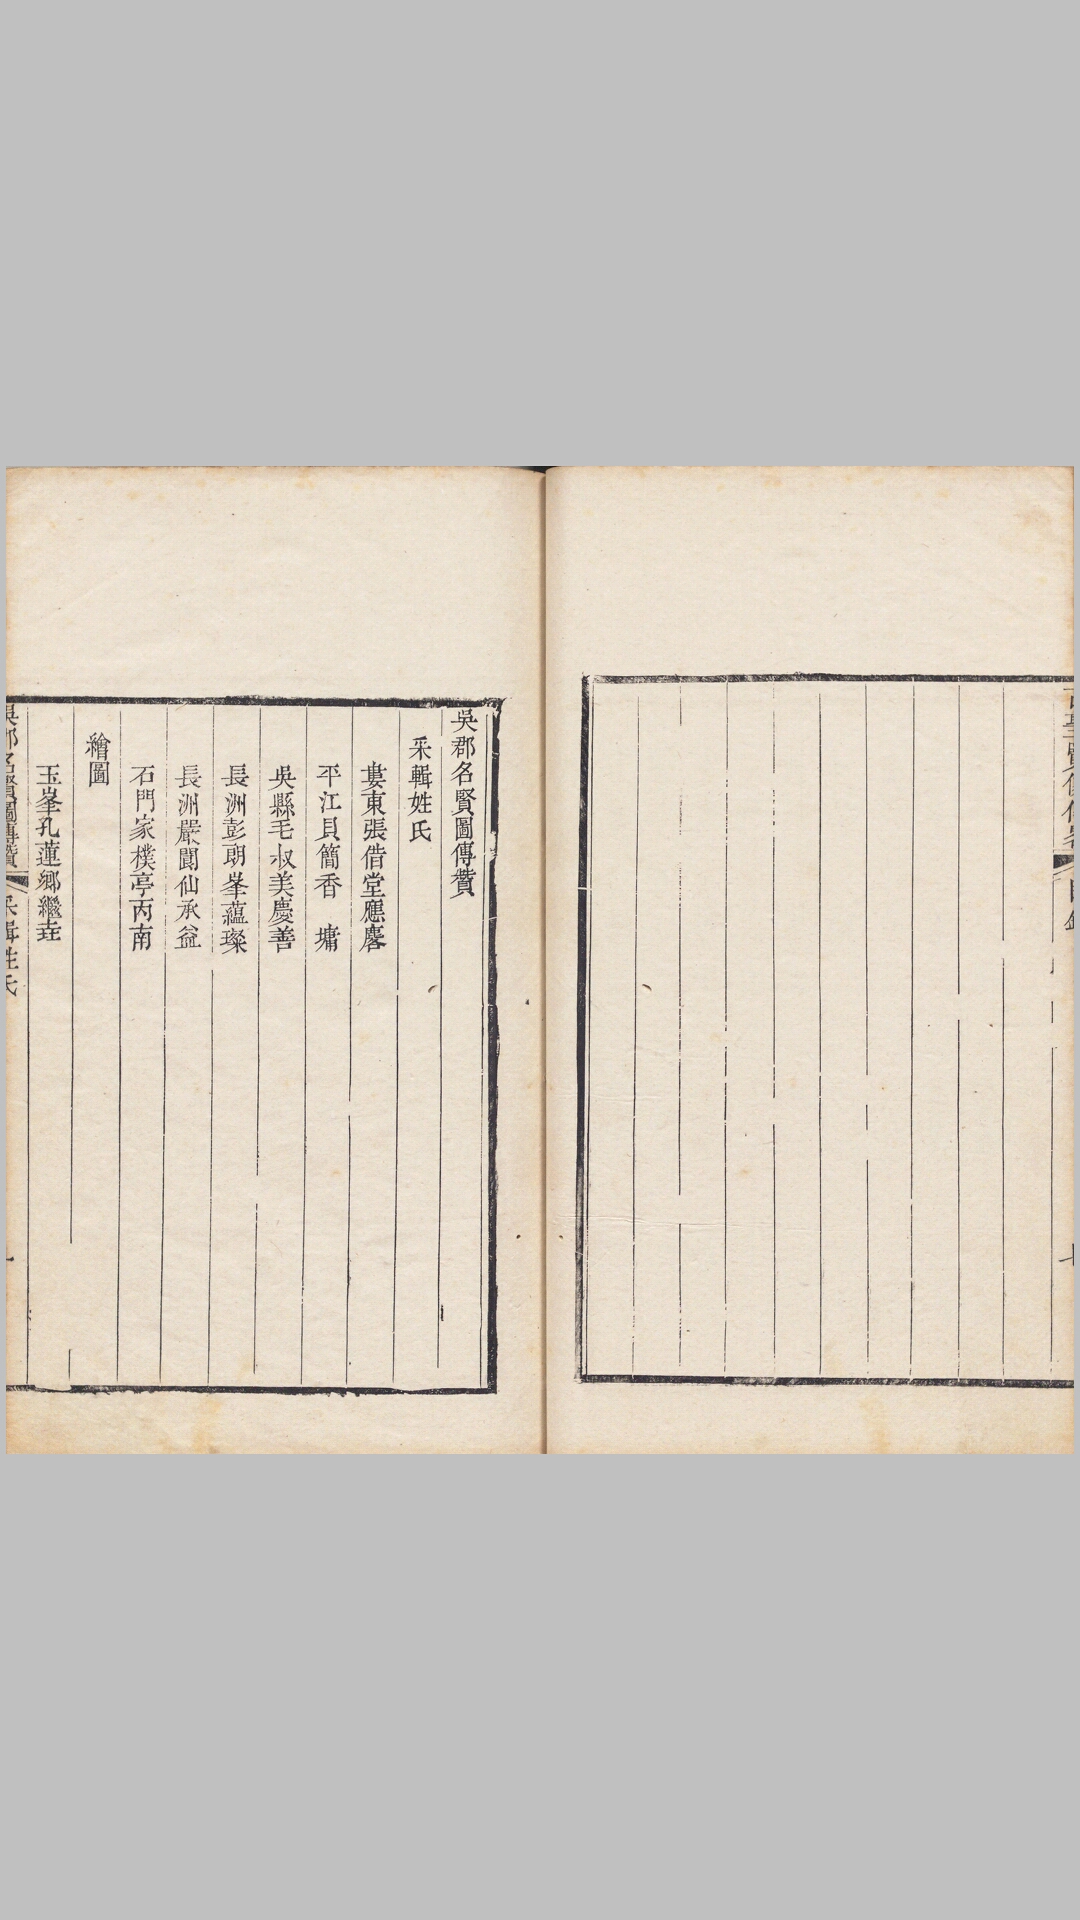 目錄
吳郡名賢圖傳贊
采輯姓氏
婁東張借堂應麐
平江貝簡香　墉
吳縣毛叔美慶善
長洲彭朗峯蘊璨
長洲嚴閬仙承益
石門家樸亭丙南
繪圖
玉峯孔蓮鄉繼垚
吳郡名賢圖傳贊　采輯姓氏　一